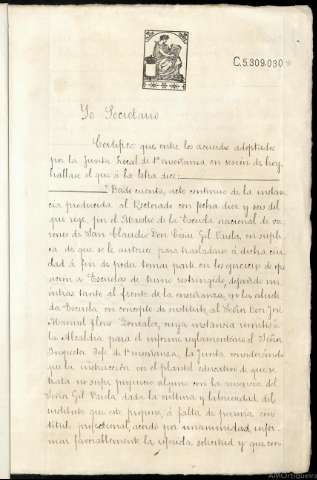 C.5.309.030
Yo Secretario
Certifico que entre los acuerdos adoptados
por la Junta Local de 1ª enseñanza en sesión de hoy
hallase el que á la letra dice:
"Dada cuenta, acto continuo de la instan
cia producida al Rectorado con fecha diez y seis del
que rige, por el Maestro de la Escuela nacional de va
rones de San Claudio Don Gil Varela, en súplí
ca de que se le autorice para trasladarse á dicha ciu
dad á fin de poder tomar parte en los ejercicios de opo
sición á Escuelas de turno restringido, dejando mi
entras tanto al frente de la enseñanza, en la aludi
da Escuela, en concepto de sustituto, al Señor Don José
Manuel González, cuya instancia remitió á
la Alcaldía para el informe reglamentario el Señor
Inspector Jefe de 1ª enseñanza, la Junta considerando
que la instrucción en el plantel educativo de que se
trata no sufre perjuicio alguno con la ausencia del
Señor Gil Varela dada la cultura y laboriosidad del
sustituto que este propone, á falta de persona con
titulo profesional, acordó por unanimidad infor
mar favorablemente la referida solicitud y que con